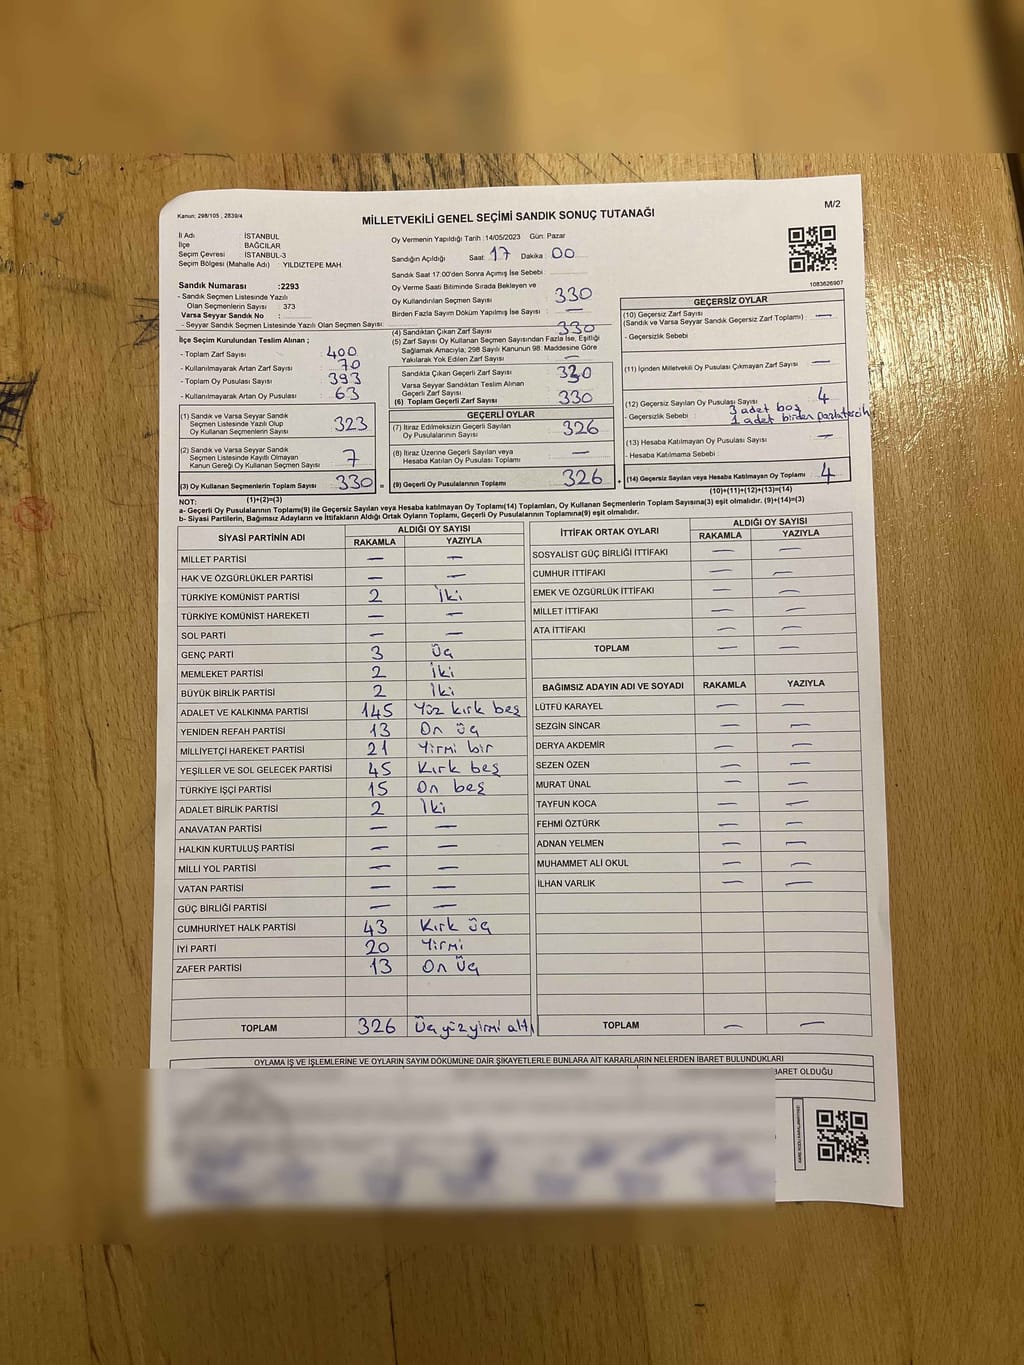 Kanun; 298/105 , 2839/4
MİLLETVEKİLİ GENEL SEÇİMİ SANDIK SONUÇ TUTANAĞI
M/2
İl Adı : İSTANBUL
İlçe : BAĞCILAR
Seçim Çevresi : İSTANBUL-3
Seçim Bölgesi (Mahalle Adı) : YILDIZTEPE MAH.
Sandık Numarası :2293
- Sandık Seçmen Listesinde Yazılı
Olan Seçmenlerin Sayısı : 373
Varsa Seyyar Sandık No :
- Seyyar Sandık Seçmen Listesinde Yazılı Olan Seçmen Sayısı:
İlçe Seçim Kurulundan Teslim Alınan ;
- Toplam Zarf Sayısı : 400
- Kullanılmayarak Artan Zarf Sayısı : 70
- Toplam Oy Pusulası Sayısı : 393
- Kullanılmayarak Artan Oy Pusulası : 63
(1) Sandık ve Varsa Seyyar Sandık
Seçmen Listesinde Yazılı Olup
Oy Kullanan Seçmenlerin Sayısı 323
(2) Sandık ve Varsa Seyyar Sandık
Seçmen Listesinde Kayıtlı Olmayan
Kanun Gereği Oy Kullanan Seçmen Sayısı 7
(3) Oy Kullanan Seçmenlerin Toplam Sayısı 330 =
(1)+(2)=(3)
Oy Vermenin Yapıldığı Tarih :14/05/2023 Gün: Pazar
Sandığın Açıldığı Saat : 17 Dakika : 00
Sandık Saat 17.00'den Sonra Açılmış İse Sebebi :
Oy Verme Saati Bitiminde Sırada Bekleyen ve
Oy Kullandırılan Seçmen Sayısı : 330
Birden Fazla Sayım Döküm Yapılmış İse Sayısı : —
(4) Sandıktan Çıkan Zarf Sayısı : 330
(5) Zarf Sayısı Oy Kullanan Seçmen Sayısından Fazla İse, Eşitliği
Sağlamak Amacıyla; 298 Sayılı Kanunun 98. Maddesine Göre
Yakılarak Yok Edilen Zarf Sayısı : —
Sandıkta Çıkan Geçerli Zarf Sayısı : 330
Varsa Seyyar Sandıktan Teslim Alınan
Geçerli Zarf Sayısı :
(6) Toplam Geçerli Zarf Sayısı : 330
GEÇERLİ OYLAR
(7) İtiraz Edilmeksizin Geçerli Sayılan
Oy Pusulalarının Sayısı : 326
(8) İtiraz Üzerine Geçerli Sayılan veya
Hesaba Katılan Oy Pusulası Toplamı : —
(9) Geçerli Oy Pusulalarının Toplamı : 326 +
1083626907
GEÇERSİZ OYLAR
(10) Geçersiz Zarf Sayısı : —
(Sandık ve Varsa Seyyar Sandık Geçersiz Zarf Toplamı)
- Geçersizlik Sebebi :
(11) İçinden Milletvekili Oy Pusulası Çıkmayan Zarf Sayısı : —
(12) Geçersiz Sayılan Oy Pusulası Sayısı : 4
- Geçersizlik Sebebi : 3 adet boş
1 adet birden fazla tercih
(13) Hesaba Katılmayan Oy Pusulası Sayısı : —
- Hesaba Katılmama Sebebi :
(14) Geçersiz Sayılan veya Hesaba Katılmayan Oy Toplamı : 4
(10)+(11)+(12)+(13)=(14)
NOT:
a- Geçerli Oy Pusulalarının Toplamı(9) ile Geçersiz Sayılan veya Hesaba katılmayan Oy Toplamı(14) Toplamları, Oy Kullanan Seçmenlerin Toplam Sayısına(3) eşit olmalıdır. (9)+(14)=(3)
b- Siyasi Partilerin, Bağımsız Adayların ve İttifakların Aldığı Ortak Oyların Toplamı, Geçerli Oy Pusulalarının Toplamına(9) eşit olmalıdır.
SİYASİ PARTİNİN ADI ALDIĞI OY SAYISI
RAKAMLA YAZIYLA
MİLLET PARTİSİ — —
HAK VE ÖZGÜRLÜKLER PARTİSİ — —
TÜRKİYE KOMÜNİST PARTİSİ 2 İki
TÜRKİYE KOMÜNİST HAREKETİ — —
SOL PARTİ — —
GENÇ PARTİ 3 Üç
MEMLEKET PARTİSİ 2 İki
BÜYÜK BİRLİK PARTİSİ 2 İki
ADALET VE KALKINMA PARTİSİ 145 Yüz kırk beş
YENİDEN REFAH PARTİSİ 13 On üç
MİLLİYETÇİ HAREKET PARTİSİ 21 Yirmi bir
YEŞİLLER VE SOL GELECEK PARTİSİ 45 Kırk beş
TÜRKİYE İŞÇİ PARTİSİ 15 On beş
ADALET BİRLİK PARTİSİ 2 İki
ANAVATAN PARTİSİ — —
HALKIN KURTULUŞ PARTİSİ — —
MİLLİ YOL PARTİSİ — —
VATAN PARTİSİ — —
GÜÇ BİRLİĞİ PARTİSİ — —
CUMHURİYET HALK PARTİSİ 43 Kırk üç
İYİ PARTİ 20 Yirmi
ZAFER PARTİSİ 13 On üç
TOPLAM 326 Üç yüz yirmi altı
İTTİFAK ORTAK OYLARI ALDIĞI OY SAYISI
RAKAMLA YAZIYLA
SOSYALİST GÜÇ BİRLİĞİ İTTİFAKI — —
CUMHUR İTTİFAKI — —
EMEK VE ÖZGÜRLÜK İTTİFAKI — —
MİLLET İTTİFAKI — —
ATA İTTİFAKI — —
TOPLAM — —
BAĞIMSIZ ADAYIN ADI VE SOYADI RAKAMLA YAZIYLA
LÜTFÜ KARAYEL — —
SEZGİN SİNCAR — —
DERYA AKDEMİR — —
SEZEN ÖZEN — —
MURAT ÜNAL — —
TAYFUN KOCA — —
FEHMİ ÖZTÜRK — —
ADNAN YELMEN — —
MUHAMMET ALİ OKUL — —
İLHAN VARLIK — —
TOPLAM — —
OYLAMA İŞ VE İŞLEMLERİNE VE OYLARIN SAYIM DÖKÜMÜNE DAİR ŞİKAYETLERLE BUNLARA AİT KARARLARIN NELERDEN İBARET BULUNDUKLARI
BARET OLDUĞU